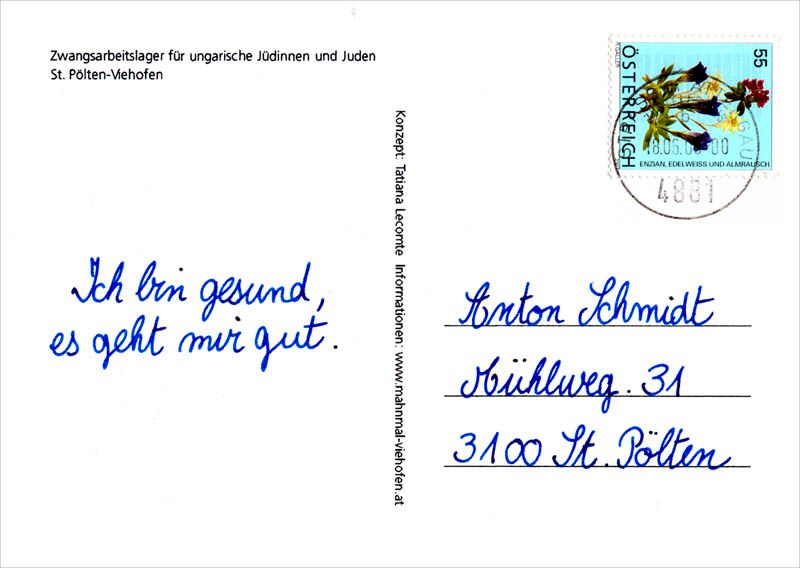 Zwangsarbeitslager für ungarische Jüdinnen und Juden
St. Pölten-Viehofen
Konzept: Tatiana Lecomte Informationen: www.mahnmal-viehofen.at
55
ÖSTERREICH
ENZIAN, EDELWEISS UND ALMRAUSCH
4881
Ich bin gesund,
es geht mir gut.
Anton Schmidt
Mühlweg. 31
3100 St. Pölten